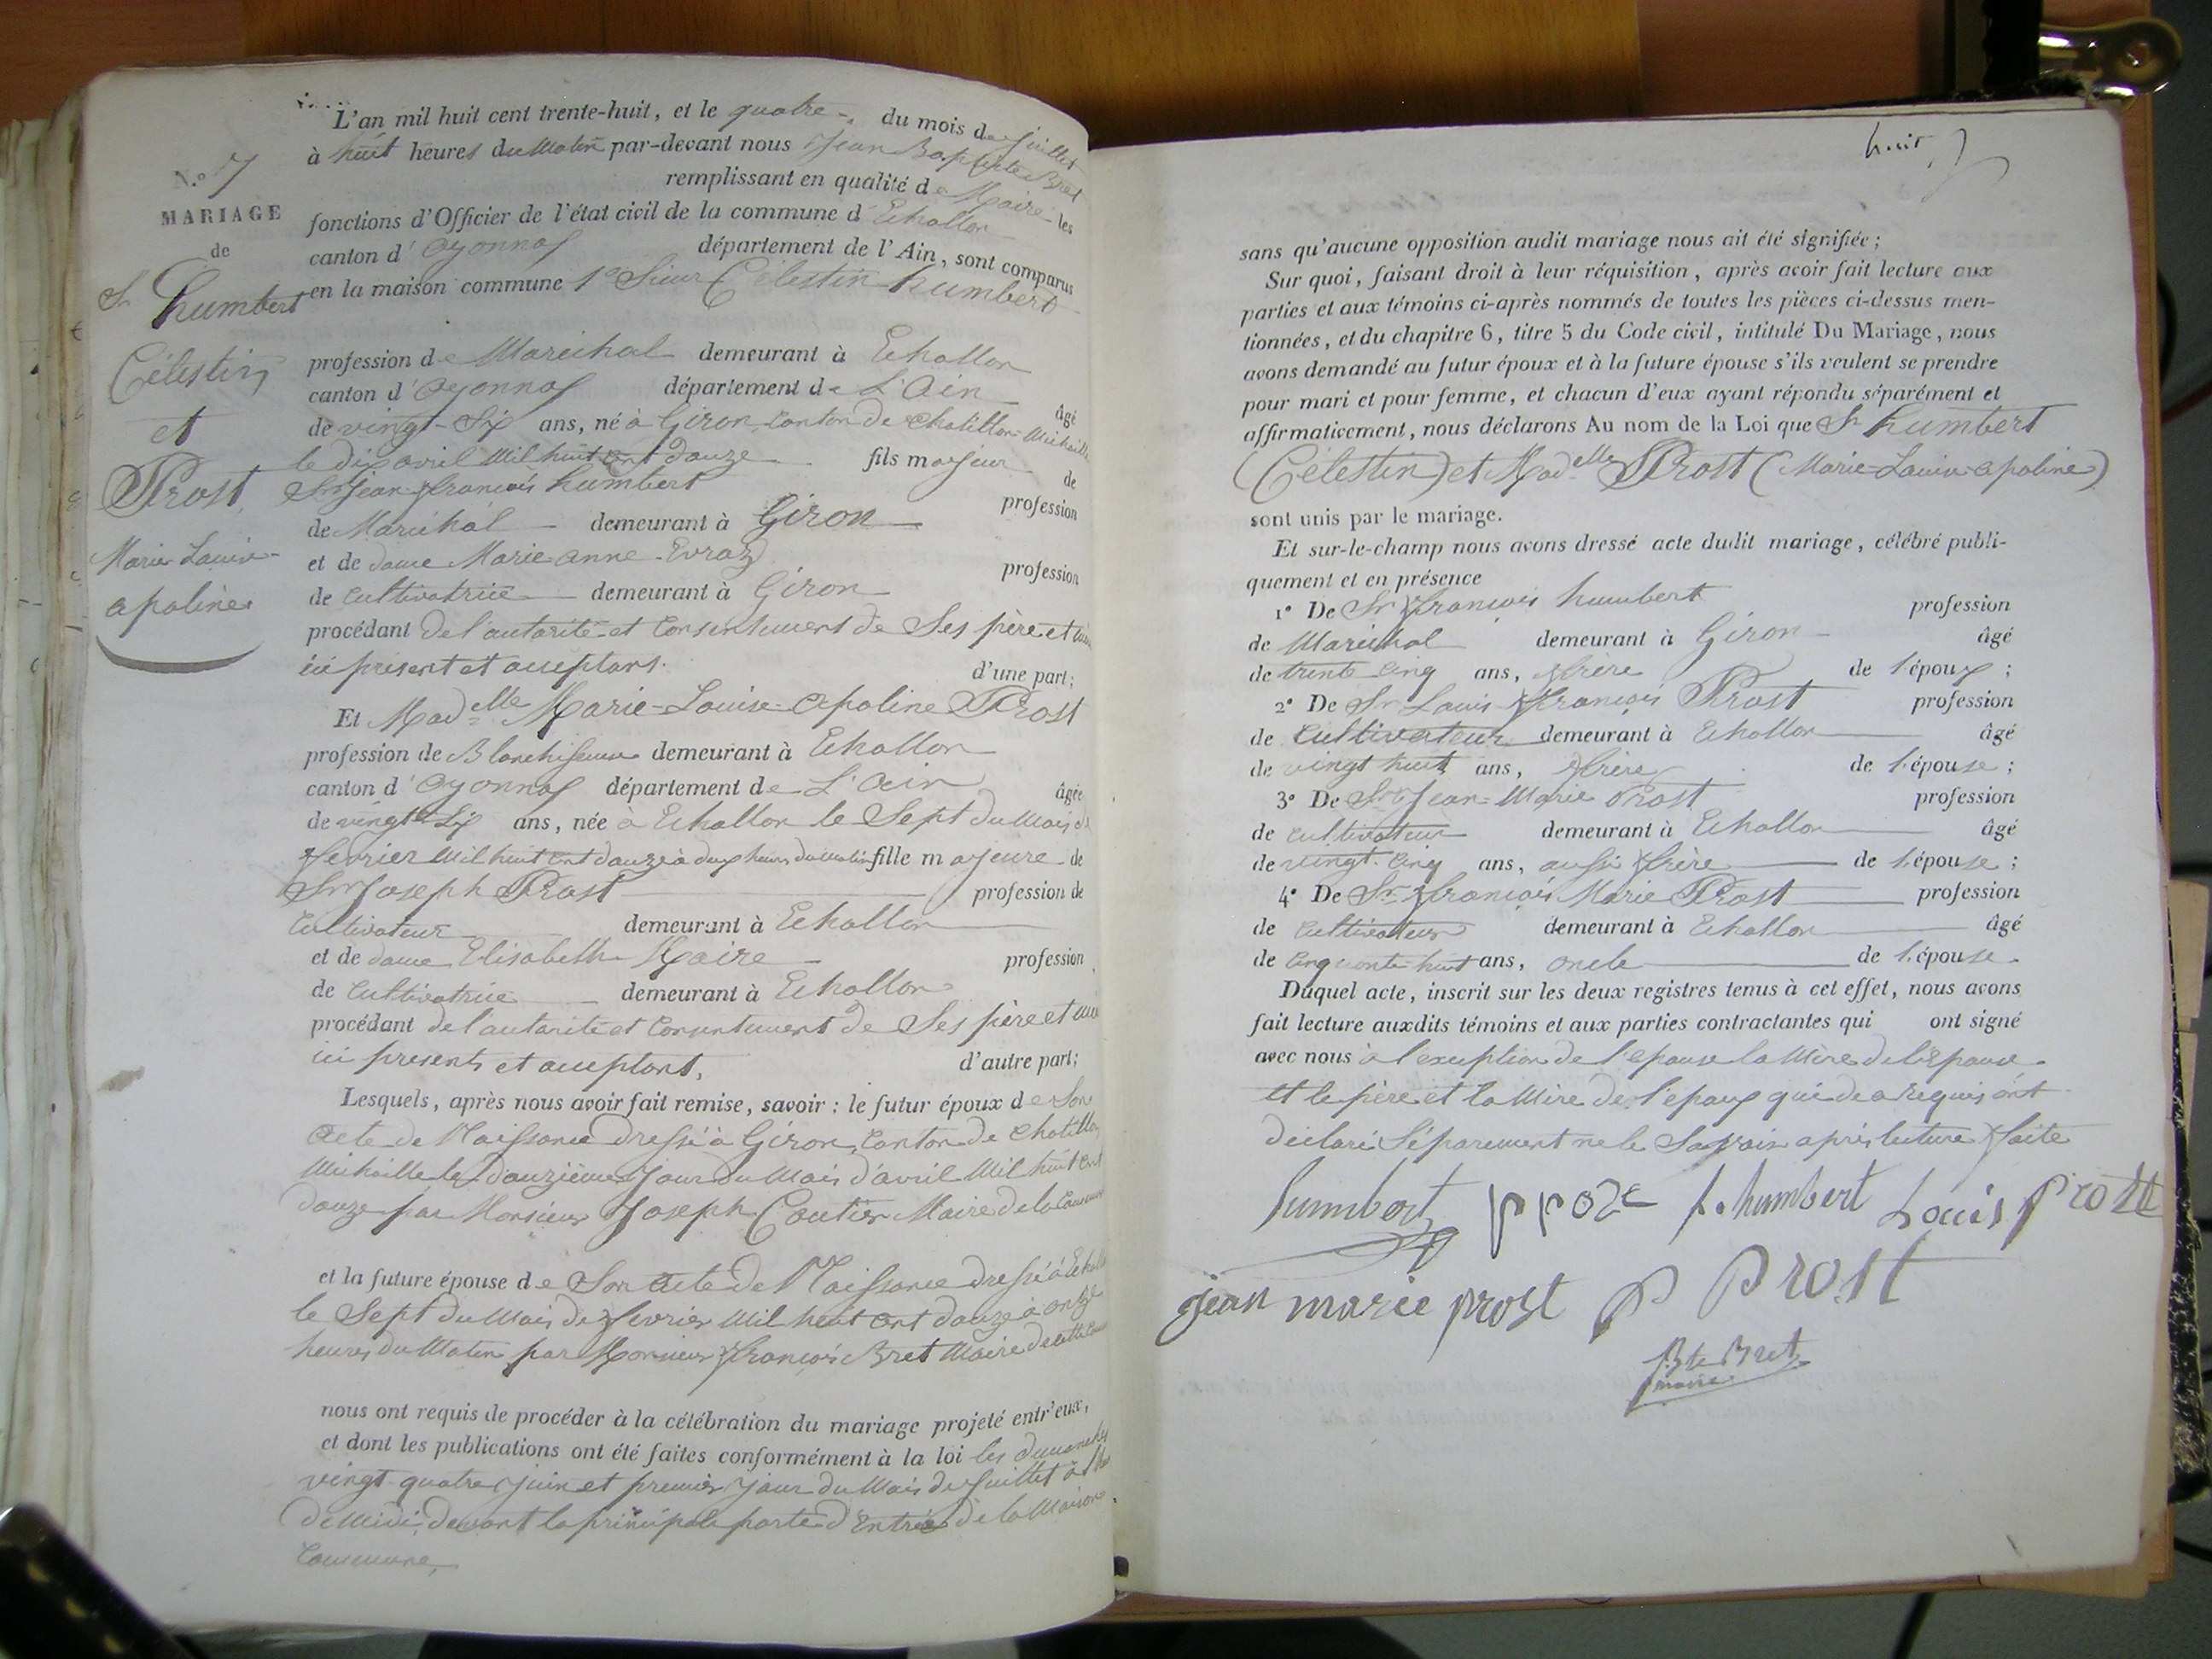 L'an mil huit cent trente-huit, et le quatre du mois de juillet
à huit heures du matin par-devant nous Jean Baptiste Bret
remplissant en qualité de Maire les
fonctions d'Officier de l'état civil de la commune d'Echallon
canton d'Oyonnax département de l'Ain, sont comparus
en la maison commune 1° Sieur Célestin humbert
N.° 7
MARIAGE
de
Sr humbert
Célestin
et
Prost
Marie Louise
apoline
profession de Maréchal demeurant à Echallon
canton d'Oyonnax département de L'Ain
âgé
de vingt-Six ans, né à Giron, Canton de Chatillon Michaille
le dix avril Mil huit Cent douze fils majeur de
Sr Jean-françois humbert profession
de Maréchal demeurant à Giron
et de dame Marie anne Evraz profession
de Cultivatrice demeurant à Giron
procédant de l'autorité et Consentement de Ses père et mère
ici présent et acceptant. d'une part;
Et Madelle Marie-Louise-Apoline Prost
profession de Blanchisseuse demeurant à Echallon
canton d'Oyonnax département de L'Ain âgée
de vingt Six ans, née à Echallon le Sept du Mois de
fevrier Mil huit Cent douze à deux heures du Matin fille majeure de
Sr Joseph Prost profession de
Cultivateur demeurant à Echallon
et de dame Elisabeth Maire profession
de Cultivatrice demeurant à Echallon
procédant de l'autorité et Consentement de Ses père et mère
ici présents et acceptant, d'autre part;
Lesquels, après nous avoir fait remise, savoir : le futur époux de Son
Acte de Naissance dressé à Giron, Canton de Chatillon
Michaille le douzième jour du Mois d'avril Mil huit Cent
douze par Monsieur Joseph Coutier Maire de la Commune
et la future épouse de Son Acte de Naissance dressé à Echallon
le Sept du Mois de fevrier Mil huit Cent douze à onze
heures du Matin par Monsieur françois Bret Maire de cette Commune
nous ont requis de procéder à la célébration du mariage projeté entr'eux,
et dont les publications ont été faites conformément à la loi les dimanches
vingt quatre juin et premier jour du Mois de Juillet à l'heure
de Midi, devant la principale porte d'Entrée de la Maison
Commune,
huit
sans qu'aucune opposition audit mariage nous ait été signifiée ;
Sur quoi, faisant droit à leur réquisition, après avoir fait lecture aux
parties et aux témoins ci-après nommés de toutes les pièces ci-dessus men-
tionnées, et du chapitre 6, titre 5 du Code civil, intitulé Du Mariage, nous
avons demandé au futur époux et à la future épouse s'ils veulent se prendre
pour mari et pour femme, et chacun d'eux ayant répondu séparément et
affirmativement, nous déclarons Au nom de la Loi que Sr humbert
(Célestin) et Madelle Prost (Marie-Louise-apoline)
sont unis par le mariage.
Et sur-le-champ nous avons dressé acte dudit mariage, célébré publi-
quement et en présence
1° De Sr françois humbert profession
de Maréchal demeurant à Giron âgé
de trente Cinq ans, frère de l'époux ;
2° De Sr Louis-françois Prost profession
de Cultivateur demeurant à Echallon âgé
de vingt huit ans, frère de l'épouse ;
3° De Sr Jean-Marie Prost profession
de Cultivateur demeurant à Echallon âgé
de vingt-Cinq ans, aussi frère de l'épouse ;
4° De Sr françois Marie Prost profession
de Cultivateur demeurant à Echallon âgé
de Cinquante-huit ans, oncle de l'épouse.
Duquel acte, inscrit sur les deux registres tenus à cet effet, nous avons
fait lecture auxdits témoins et aux parties contractantes qui ont signé
avec nous à l'exception de l'epouse la Mère de l'épouse
et le père et la Mère de l'epoux qui de ce requis ont
déclaré Séparement ne le Savoir après lecture faite
humbert f. humbert Louis Prost
jean marie prost P Prost
Bte Bret
maire